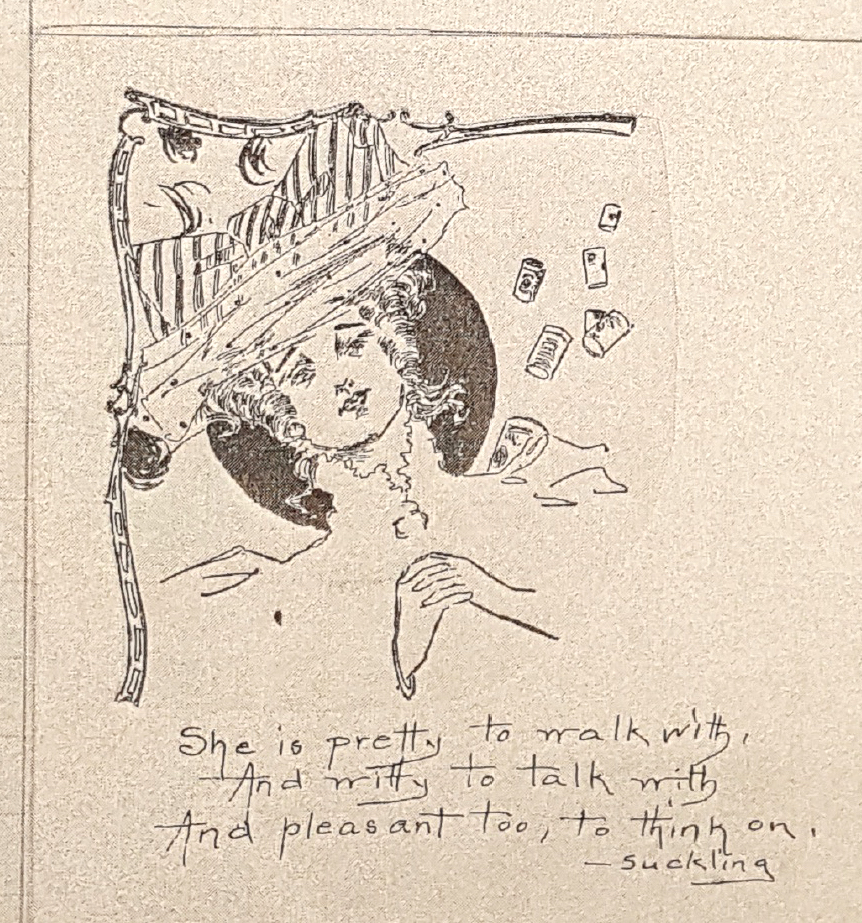 She is pretty to walk with,
And witty to talk with
And pleasant too, to think on.
- suckling